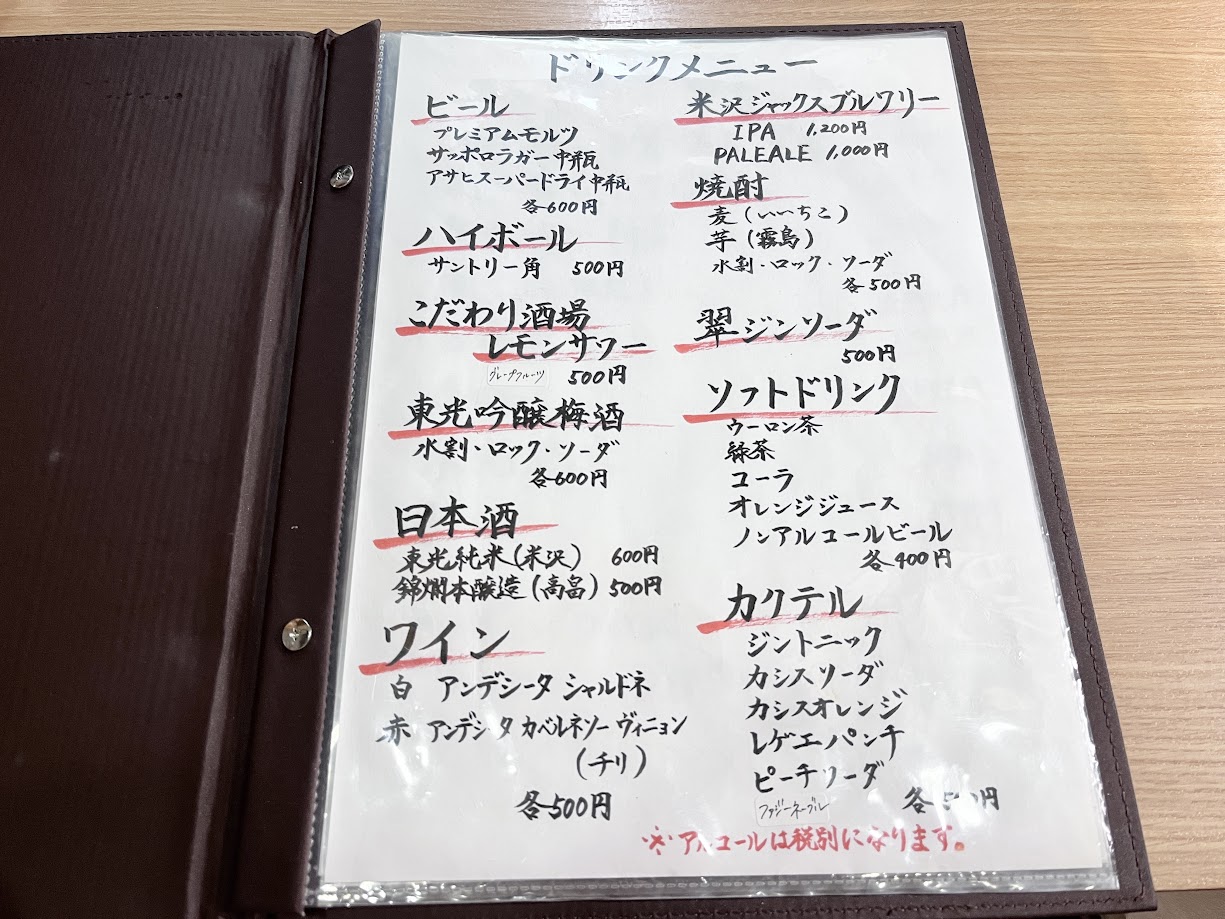 ドリンクメニュー
ビール
プレミアムモルツ
サッポロラガー中瓶
アサヒスーパードライ中瓶
各600円
ハイボール
サントリー角 500円
こだわり酒場
レモンサワー
グレープフルーツ 500円
東光吟醸梅酒
水割・ロック・ソーダ
各600円
日本酒
東光純米(米沢) 600円
錦爛本醸造(高畠) 500円
ワイン
白 アンデシータ シャルドネ
赤 アンデシータ カベルネソーヴィニョン
(チリ)
各500円
米沢ジャックスブルワリー
IPA 1,200円
PALEALE 1,000円
焼酎
麦(いいちこ)
芋(霧島)
水割・ロック・ソーダ
各500円
翠ジンソーダ
500円
ソフトドリンク
ウーロン茶
緑茶
コーラ
オレンジジュース
ノンアルコールビール
各400円
カクテル
ジントニック
カシスソーダ
カシスオレンジ
レゲエパンチ
ピーチソーダ
ファジーネーブル 各500円
※アルコールは税別になります。